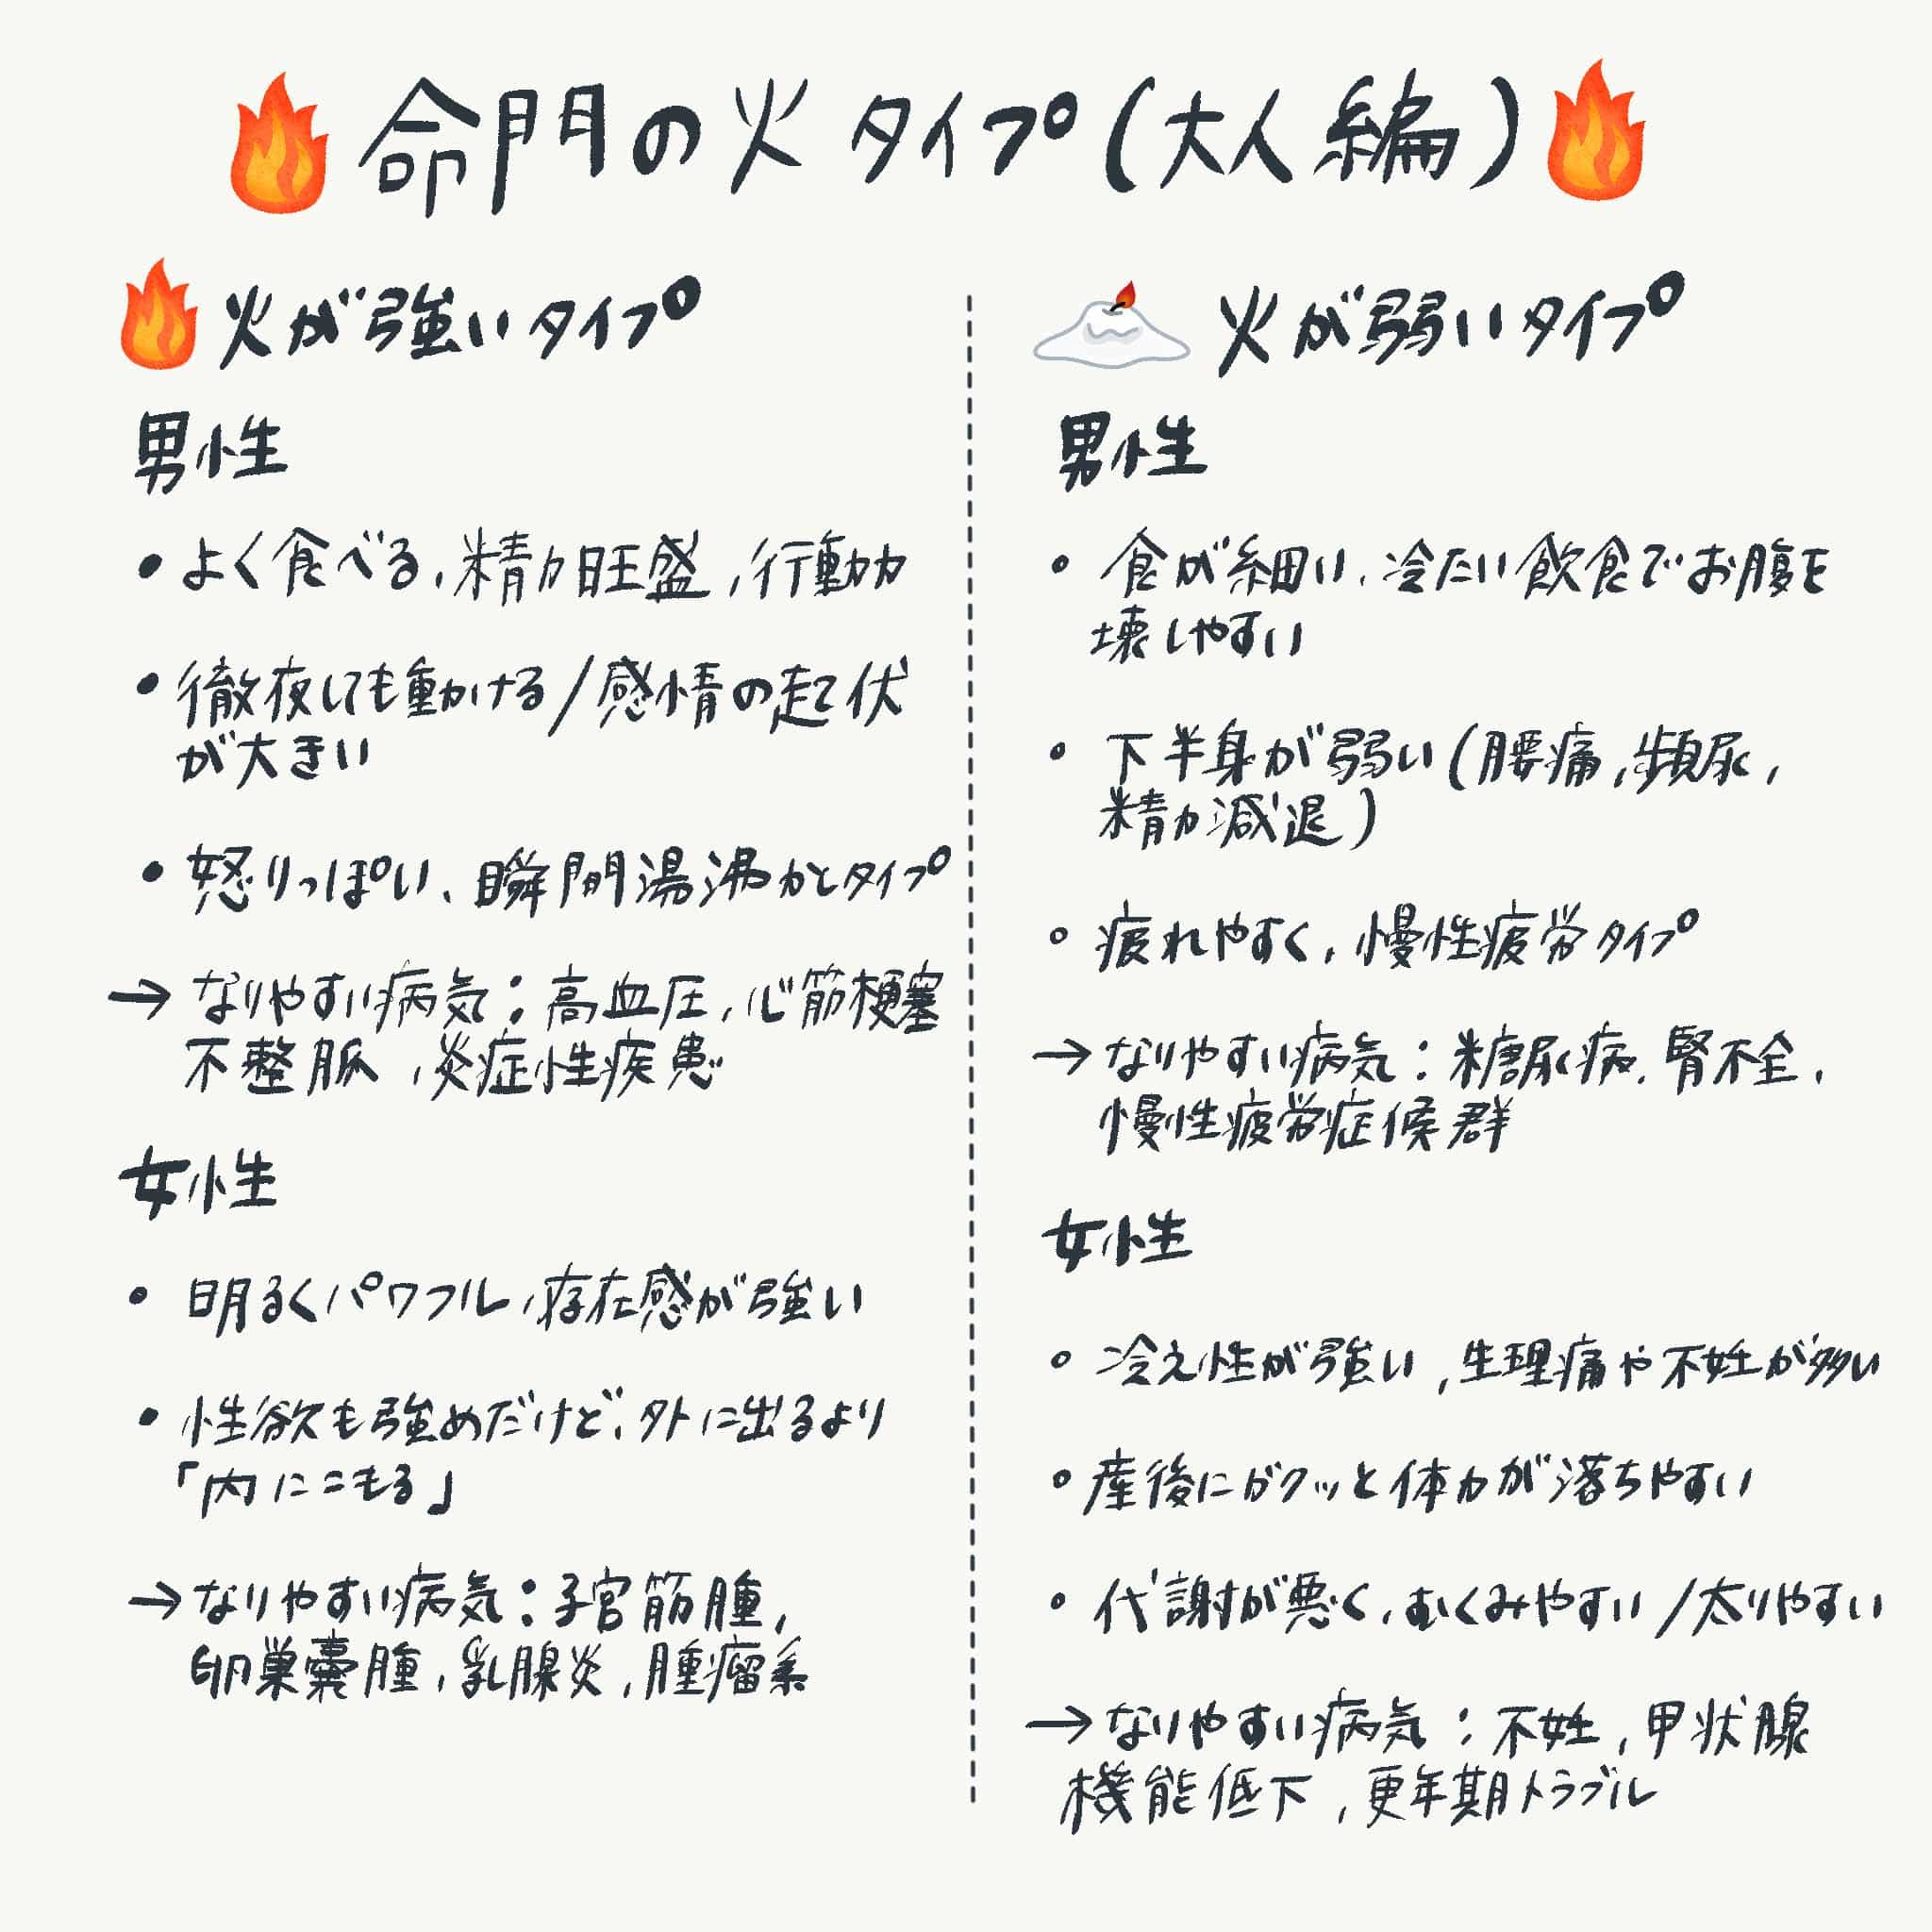 命門の火タイプ(大人編)
火が強いタイプ
男性
• よく食べる、精力旺盛、行動力
• 徹夜しても動ける/感情の起伏
が大きい
• 怒りっぽい、瞬間湯沸かしタイプ
→なりやすい病気:高血圧、心筋梗塞
不整脈、炎症性疾患
女性
• 明るくパワフル、存在感が強い
• 性欲も強めだけど、外に出るより
「内にこもる」
→なりやすい病気:子宮筋腫、
卵巣嚢腫、乳腺炎、腫瘤系
火が弱いタイプ
男性
• 食が細い、冷たい飲食でお腹を
壊しやすい
• 下半身が弱い(腰痛、頻尿、
精力減退)
• 疲れやすく、慢性疲労タイプ
→なりやすい病気:糖尿病、腎不全、
慢性疲労症候群
女性
• 冷え性が強い、生理痛や不妊が多い
• 産後にガクッと体力が落ちやすい
• 代謝が悪く、むくみやすい/太りやすい
→なりやすい病気:不妊、甲状腺
機能低下、更年期トラブル